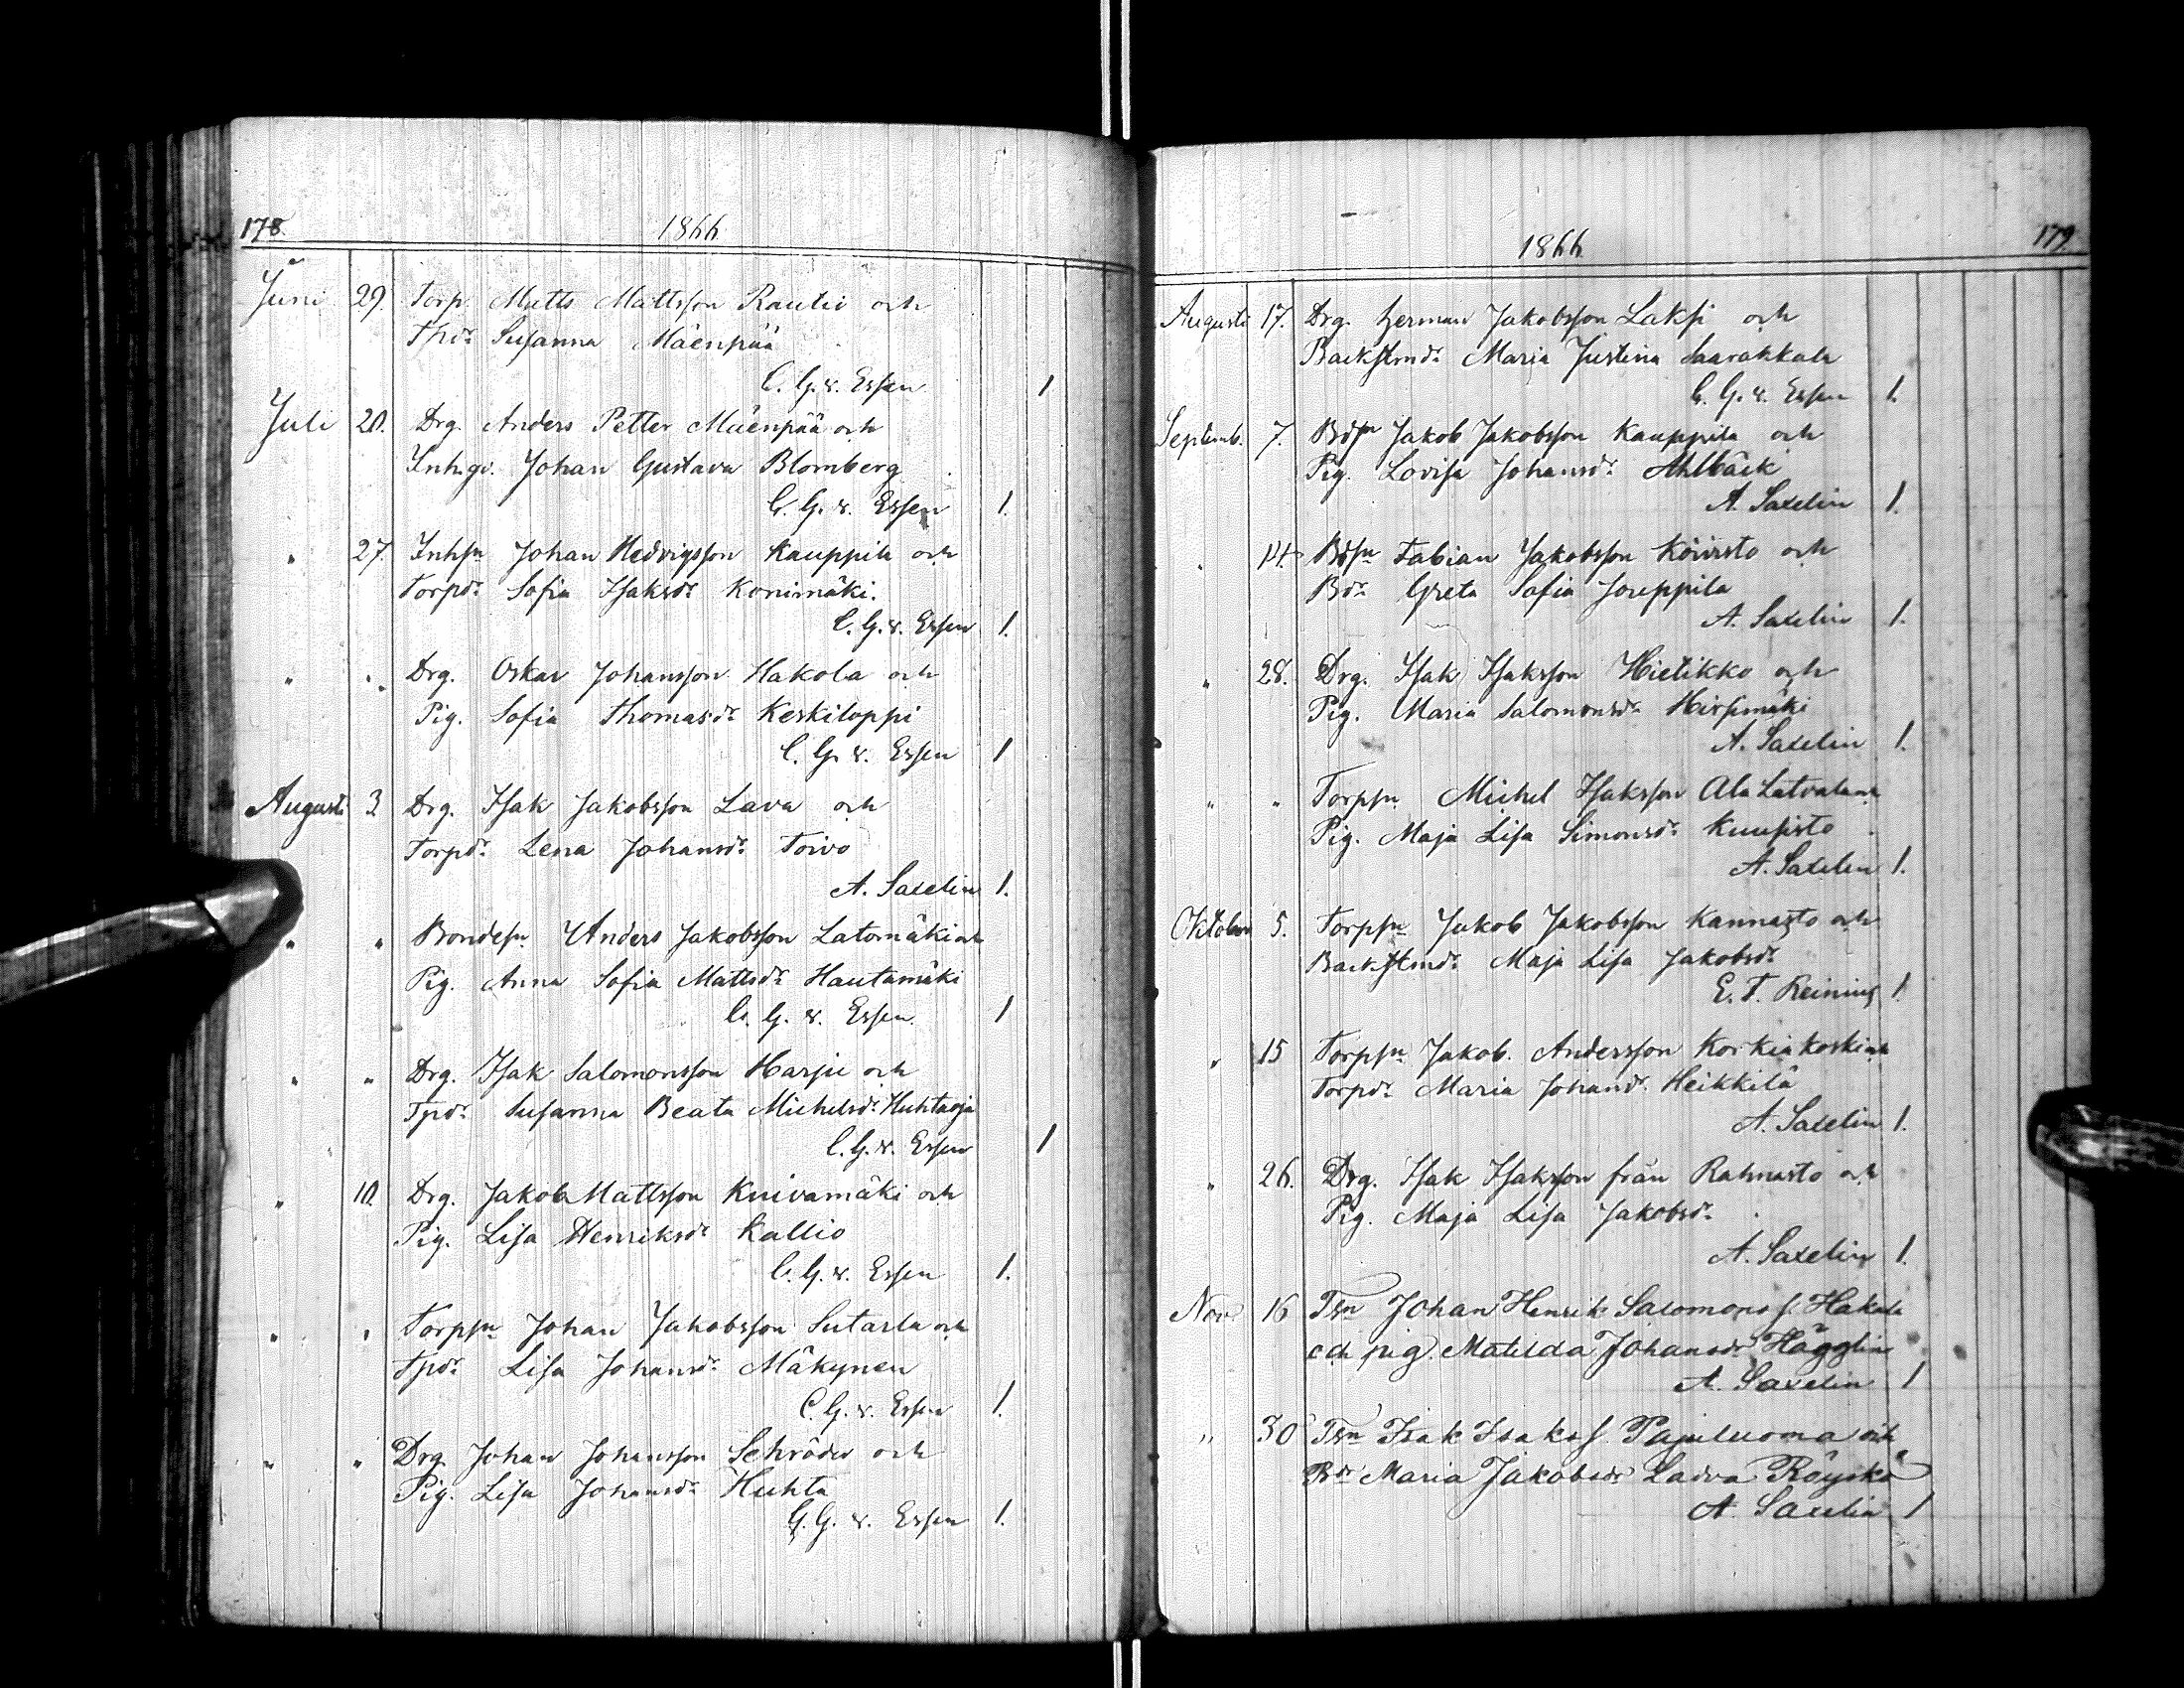 178.
1866
Juni 29. Torp. Matts Mattsson Rautio och
Tpdr Susanna Mäenpää
C. G. v. Essen 1
Juli 20. Drg. Anders Petter Mäenpää och
Inhgv. Johan Gustava Blomberg
C. G. v. Essen 1.
" 27. Inhsn Johan Hedvigsson Kauppila och
Torpdr Sofia Isaksdr Konimäki.
C. G. v. Essen 1.
" " Drg. Oskar Johansson Hakola och
Pig. Sofia Thomasdr Keskiloppi
C. G. v. Essen 1
Augusti 3. Drg. Isak Jakobsson Lava och
Torpdr Lena Johansdr Toivo
A. Saxelin 1.
" " Bondesn Anders Jakobsson Latomäki och
Pig. Anna Sofia Mattsdr Hautamäki
C. G. v. Essen. 1
" " Drg. Isak Salomonsson Harju och
Tpdr Susanna Beata Michelsdr Huhtaoja
C. G. v. Essen 1
" 10. Drg. Jakob Mattsson Knivamäki och
Pig. Lisa Henriksdr Kallio
C. G. v. Essen 1.
" " Torpsn Johan Jakobsson Sutarla och
Tpdr Lisa Johansdr Mäkynen
C. G. v. Essen 1.
" " Drg. Johan Johansson Schröder och
Pig. Lisa Johansdr Huhta
C. G. v. Essen 1.
1866
179
Augusti 17. Drg. Herman Jakobsson Laksi och
Backstmdr Maria Justina Saarakkala
C. G. v. Essen 1.
Septemb. 7. Bdsn Jakob Jakobsson Kauppila och
Pig. Lovisa Johansdr Ahlbäck
A. Saxelin 1.
" 14. Bdsn Fabian Jakobsson Köuristo och
Bdr Greta Sofia Jouppila
A. Saxelin 1.
" 28. Drg. Isak Isaksson Hietikko och
Pig. Maria Salomonsdr Hirsimäki
A. Saxelin 1.
" " Torpsn Michel Isaksson Ala Latvala och
Pig. Maja Lisa Simonsdr Kuusisto
A. Saxelin 1.
Oktober 5. Torpsn Jakob Jakobsson Kannasto och
Backstmdr Maja Lisa Jakobsdr
E. T. Reinius 1.
" 15 Torpsn Jakob Andersson Korkiakoski och
Torpdr Maria Johansdr Heikkilä
A. Saxelin 1.
" 26. Drg. Isak Isaksson från Rahnasto och
Pig. Maja Lisa Jakobsdr
A. Saxelin 1.
Nov. 16 Tsn Johan Henrik Salomons s. Hakala
och pig. Matilda Johansdr Hägglin
A. Saxelin 1
" 30 Tsn Isak Isaks s. Pajuluoma och
Bdr Maria Jakobsdr Ladva Röyskö
A. Saxelin 1